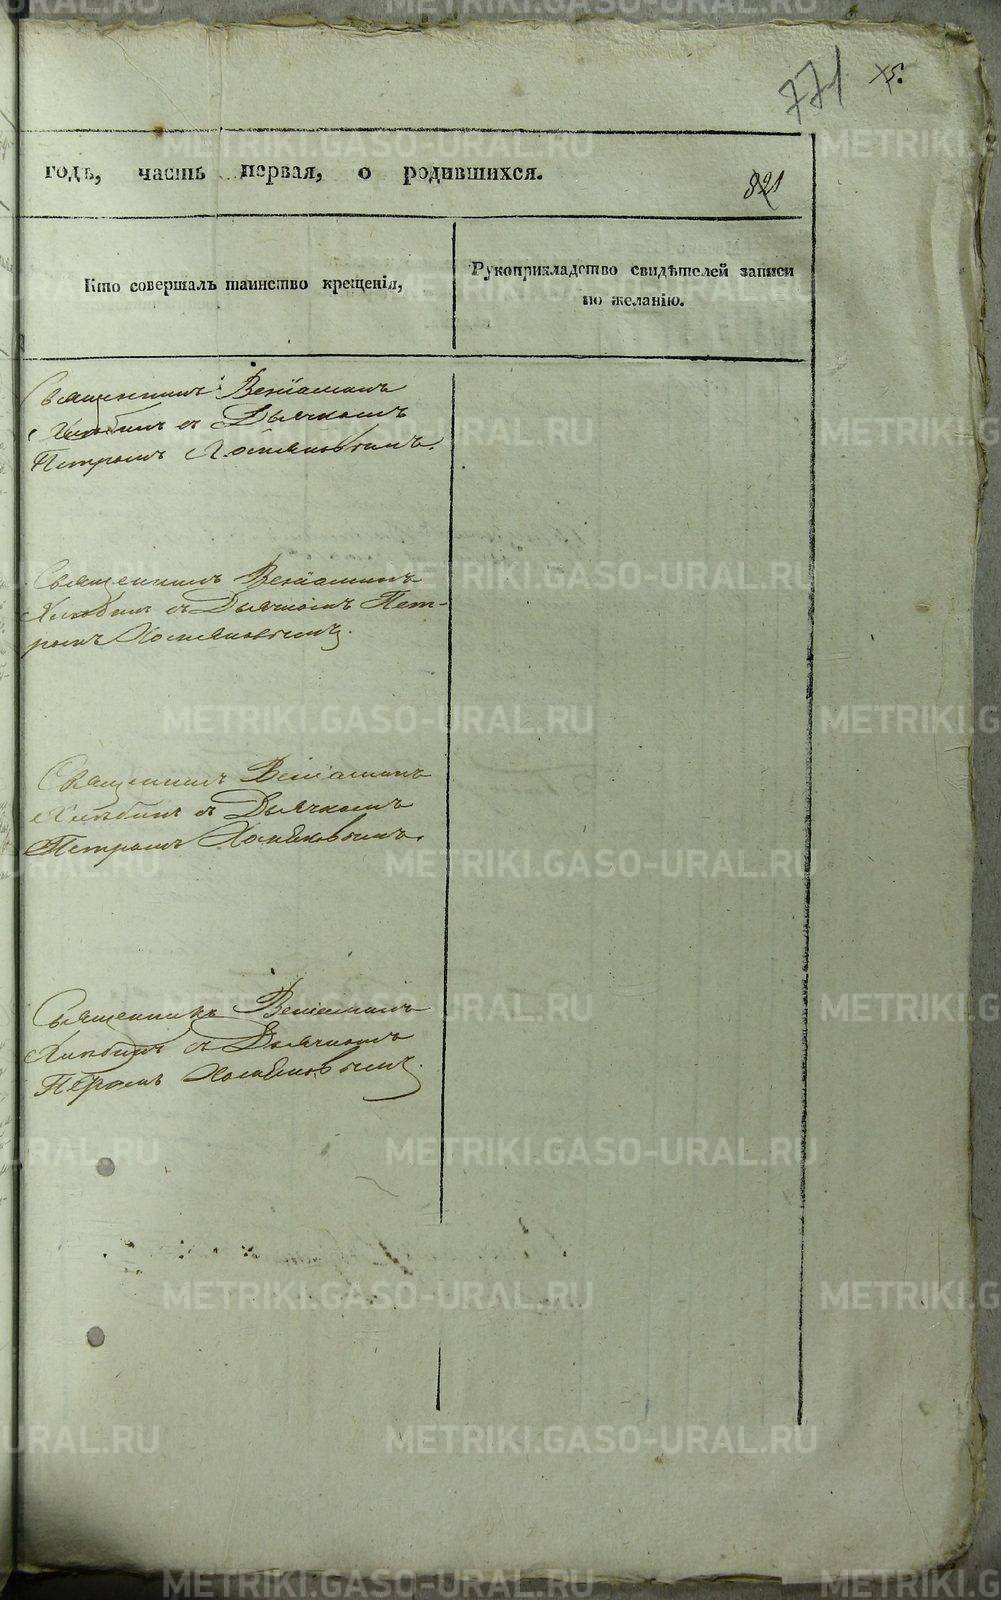 771 х5.
годъ, часть первая, о родившихся.
821
Кто совершалъ таинство крещенія,
Рукоприкладство свидѣтелей записи
по желанію.
Священникъ Веніаминъ
Хлѣбинъ съ Дьячкомъ
Петромъ Хомяковымъ.
Священникъ Веніаминъ
Хлѣбинъ съ Дьячкомъ Пет-
ромъ Хомяковымъ.
Священникъ Веніаминъ
Хлѣбинъ съ Дьячкомъ
Петромъ Хомяковымъ.
Священникъ Веніаминъ
Хлѣбинъ съ Дьячкомъ
Петромъ Хомяковымъ.
METRIKI.GASO-URAL.RU